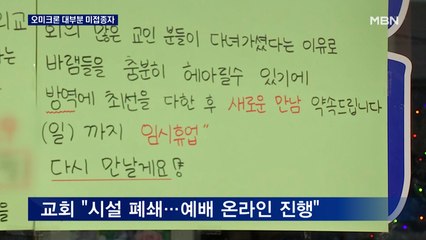 오미크론 대부분 미접종자
MBN
회의 많은 교인 분들이 다녀가셨다는 이유로
바램들을 충분히 헤아릴수 있기에
방역에 최선을 다한 후 새로운 만남 약속드립니다
(일) 까지 임시휴업"
다시 만날게요
교회 "시설 폐쇄…예배 온라인 진행"